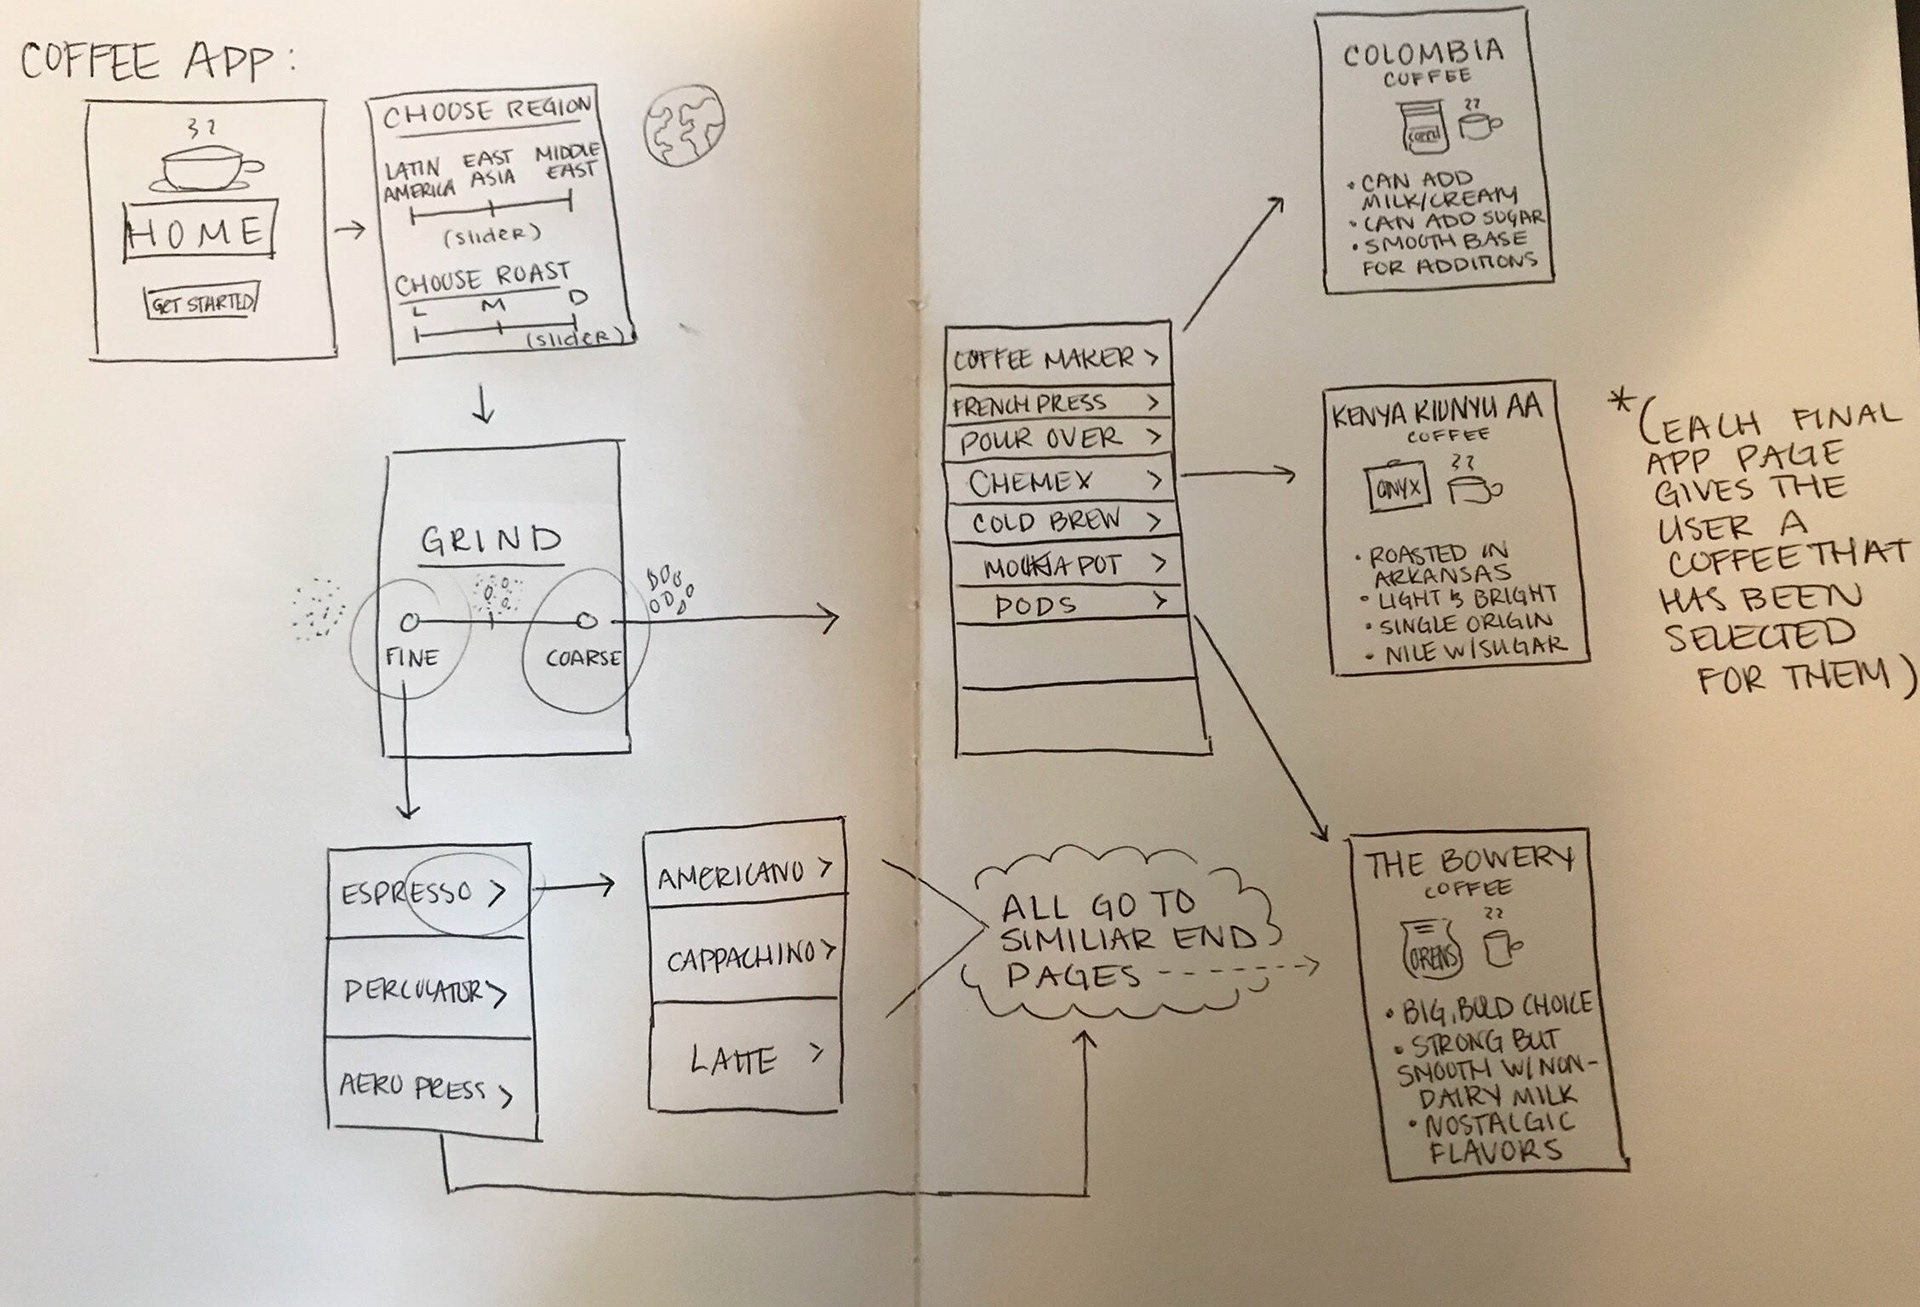 COFFEE APP:
HOME
GET STARTED
CHOOSE REGION
LATIN AMERICA
EAST ASIA
MIDDLE EAST
(slider)
CHOOSE ROAST
L M D
(slider)
GRIND
FINE
COARSE
ESPRESSO >
PERCULATOR >
AERO PRESS >
AMERICANO >
CAPPACHINO >
LATTE >
ALL GO TO
SIMILIAR END
PAGES
COFFEE MAKER >
FRENCH PRESS >
POUR OVER >
CHEMEX >
COLD BREW >
MOKA POT >
PODS >
COLOMBIA
COFFEE
• CAN ADD
MILK/CREAM
• CAN ADD SUGAR
• SMOOTH BASE
FOR ADDITIONS
KENYA KIUNYU AA
COFFEE
ONYX
• ROASTED IN
ARKANSAS
• LIGHT & BRIGHT
• SINGLE ORIGIN
• NILE W/SUGAR
THE BOWERY
COFFEE
ORENS
• BIG, BOLD CHOICE
• STRONG BUT
SMOOTH W/NON-
DAIRY MILK
• NOSTALGIC
FLAVORS
*(EACH FINAL
APP PAGE
GIVES THE
USER A
COFFEE THAT
HAS BEEN
SELECTED
FOR THEM)